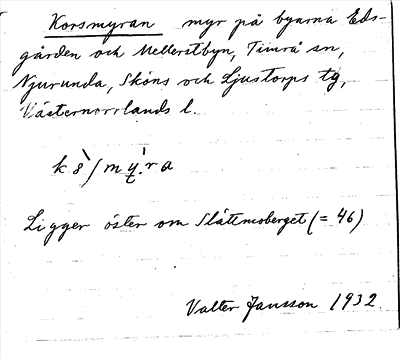 Korsmyran myr på byarna Eds-
gården och Mellerstbyn, Timrå sn,
Njurunda, Sköns och Ljustorps tg,
Västernorrlands l.
Ligger öster om Slåttmoberget (= 46)
Valter Jansson 1932.